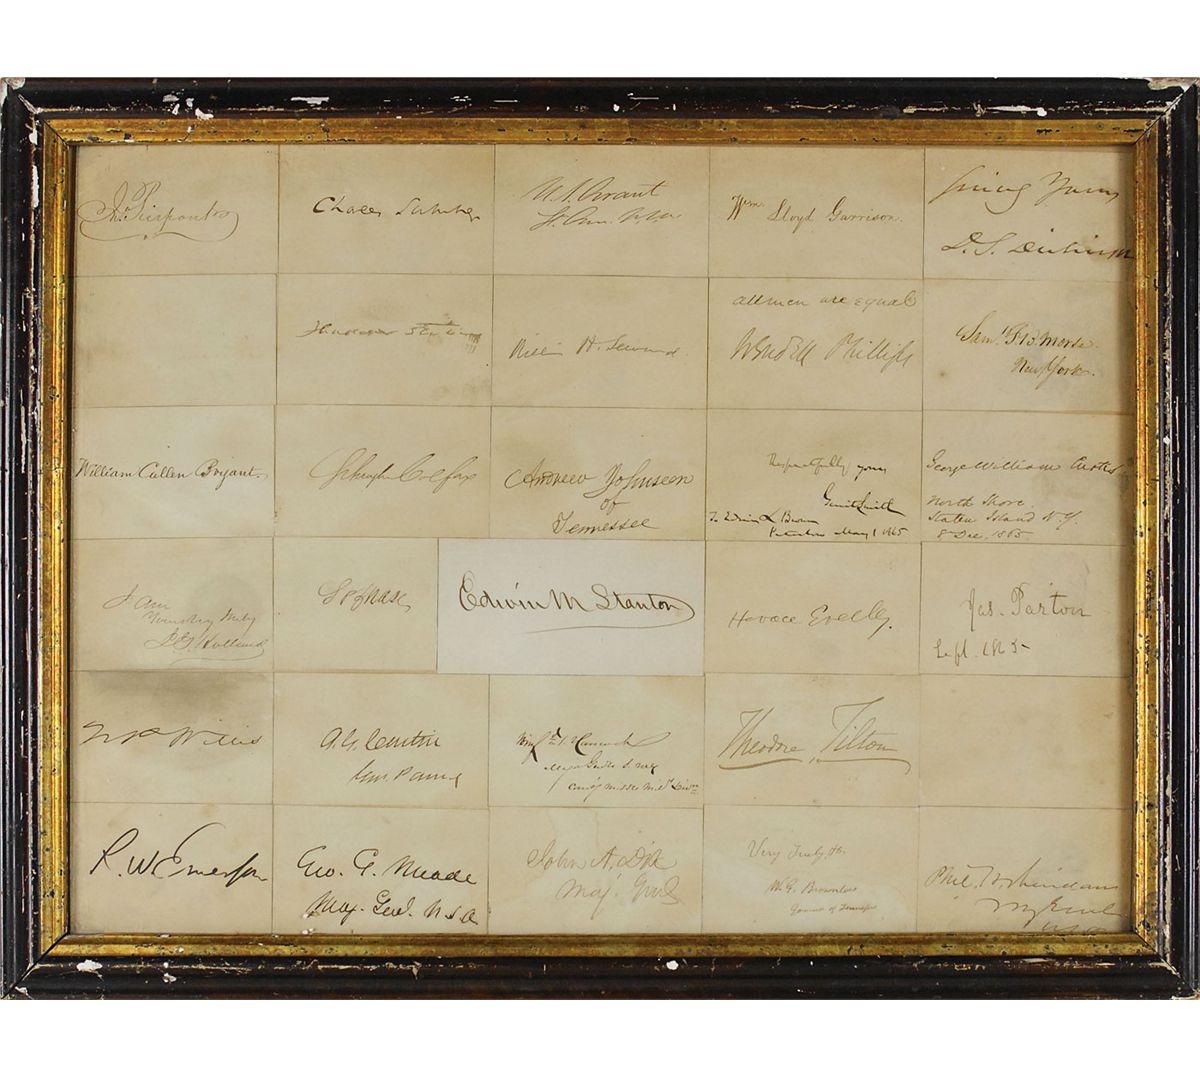 Jno. Pierpont
Charles Sumner
U.S. Grant
Lt. Gen. U.S.A.
Wm. Lloyd Garrison.
D. S. Dickinson
William H. Seward
all men are equal
Wendell Phillips
Sam. F. B. Morse.
New York.
William Cullen Bryant.
Schuyler Colfax
Andrew Johnson
of
Tennessee
Respectfully yours
Gerrit Smith
To Edwin L Brown
Peterboro May 1 1865
George William Curtis
North Shore.
Staten Island N.Y.
8 Dec. 1865
I am
Very truly
J. G. Holland
S P Chase
Edwin M Stanton
Horace Greeley.
Jas. Parton
Sept. 1865
N P Willis
A. G. Curtin
Winf. S. Hancock
Theodore Tilton
R. W. Emerson
Geo. G. Meade
Maj. Genl. U.S.A
John A. Dix
Maj. Genl
Very Truly &c.
W. G. Brownlow
Governor of Tennessee
Phil. H. Sheridan
Maj Genl